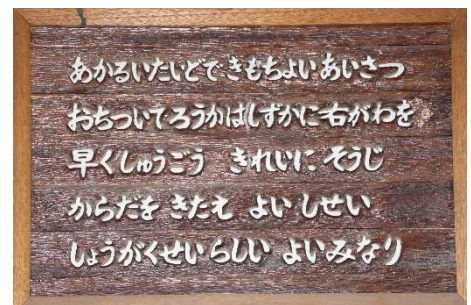 あかるいたいどできもちよいあいさつ
おちついてろうかはしずかに右がわを
早くしゅうごう きれいに そうじ
からだを きたえ よい しせい
しょうがくせいらしい よいみなり